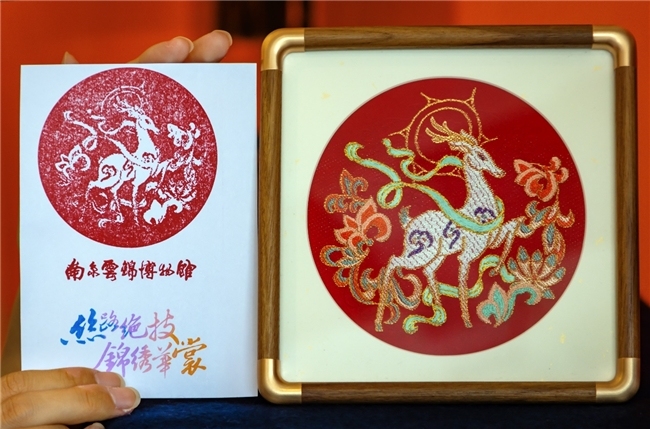 南京雲錦博物館
絲路絶技
錦绣華裳